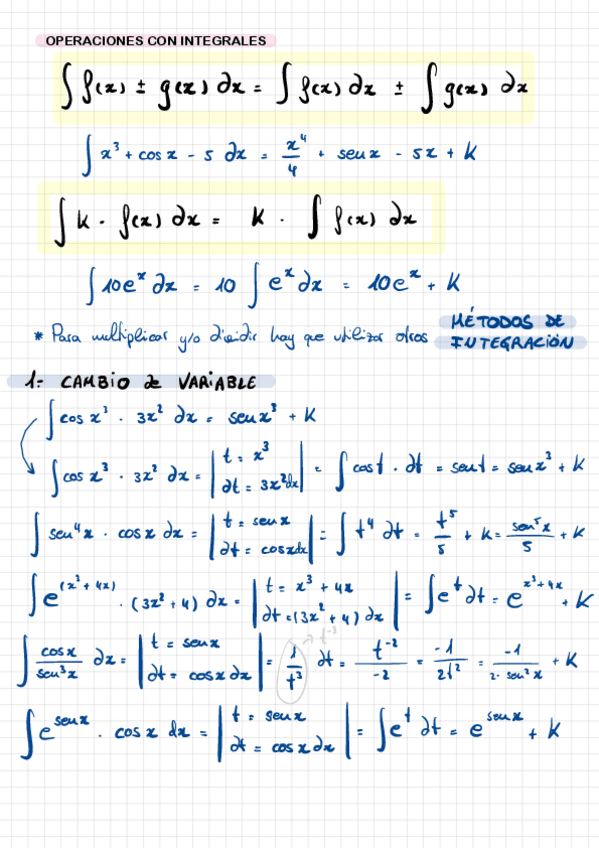 OPERACIONES CON INTEGRALES
∫ f(x) ± g(x) dx = ∫ f(x) dx ± ∫ g(x) dx
∫ x³ + cos x - 5 dx = x⁴/4 + sen x - 5x + K
∫ K · f(x) dx = K · ∫ f(x) dx
∫ 10eˣ dx = 10 ∫ eˣ dx = 10eˣ + K
* Para multiplicar y/o dividir hay que utilizar otros MÉTODOS DE INTEGRACIÓN
1- CAMBIO de VARIABLE
∫ cos x³ · 3x² dx = sen x³ + K
∫ cos x³ · 3x² dx = | t = x³ dt = 3x² dx | = ∫ cos t · dt = sen t = sen x³ + K
∫ sen⁴x · cos x dx = | t = sen x dt = cos x dx | = ∫ t⁴ dt = t⁵/5 + K = sen⁵x/5 + K
∫ e^(x³ + 4x) · (3x² + 4) dx = | t = x³ + 4x dt = (3x² + 4) dx | = ∫ eᵗ dt = e^(x³+4x) + K
∫ cos x/sen³x dx = | t = sen x dt = cos x dx | = 1/t³ → t⁻³ dt = t⁻²/-2 = -1/2t² = -1/2·sen²x + K
∫ e^(sen x) · cos x dx = | t = sen x dt = cos x dx | = ∫ eᵗ dt = e^(sen x) + K